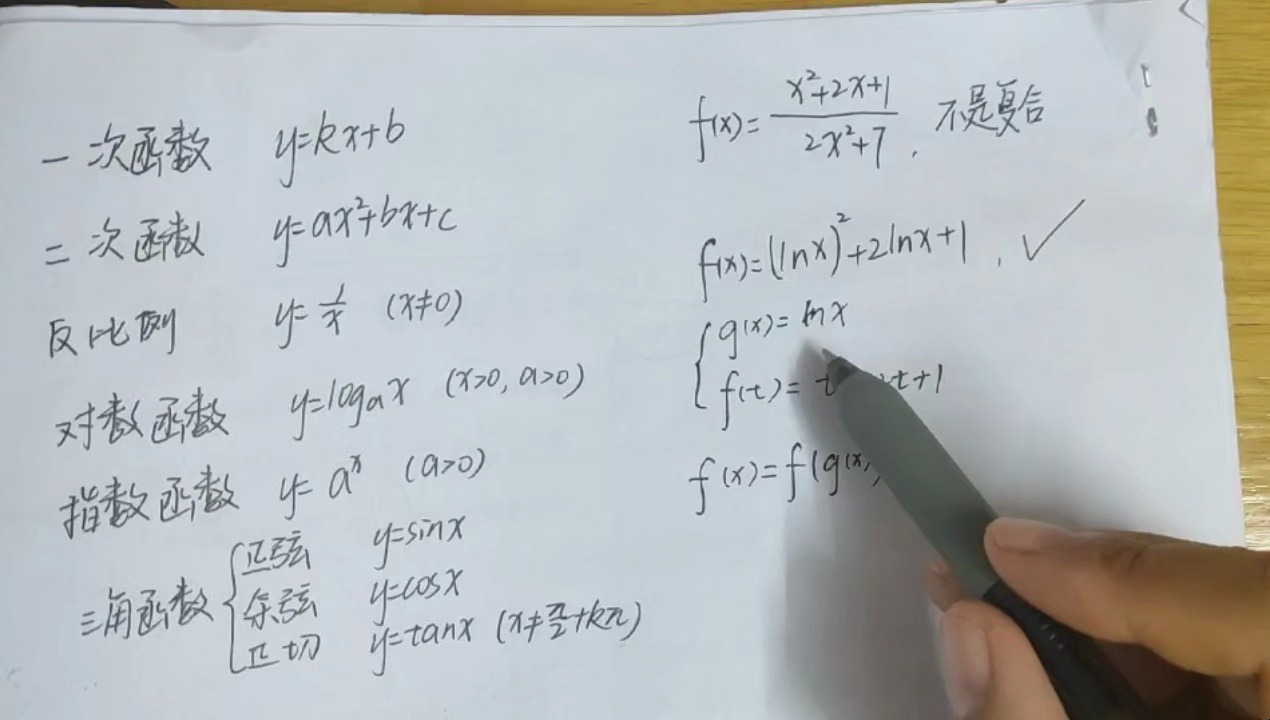 一次函数 y=kx+b
二次函数 y=ax²+bx+c
反比例 y=1/x (x≠0)
对数函数 y=logₐx (x>0, a>0)
指数函数 y=aˣ (a>0)
三角函数
正弦 y=sinx
余弦 y=cosx
正切 y=tanx (x≠π/2+kπ)
f(x)=(x²+2x+1)/(2x²+7), 不是复合
f(x)=(lnx)²+2lnx+1, ✓
g(x)=lnx
f(t)=t t+1
f(x)=f(g(x)